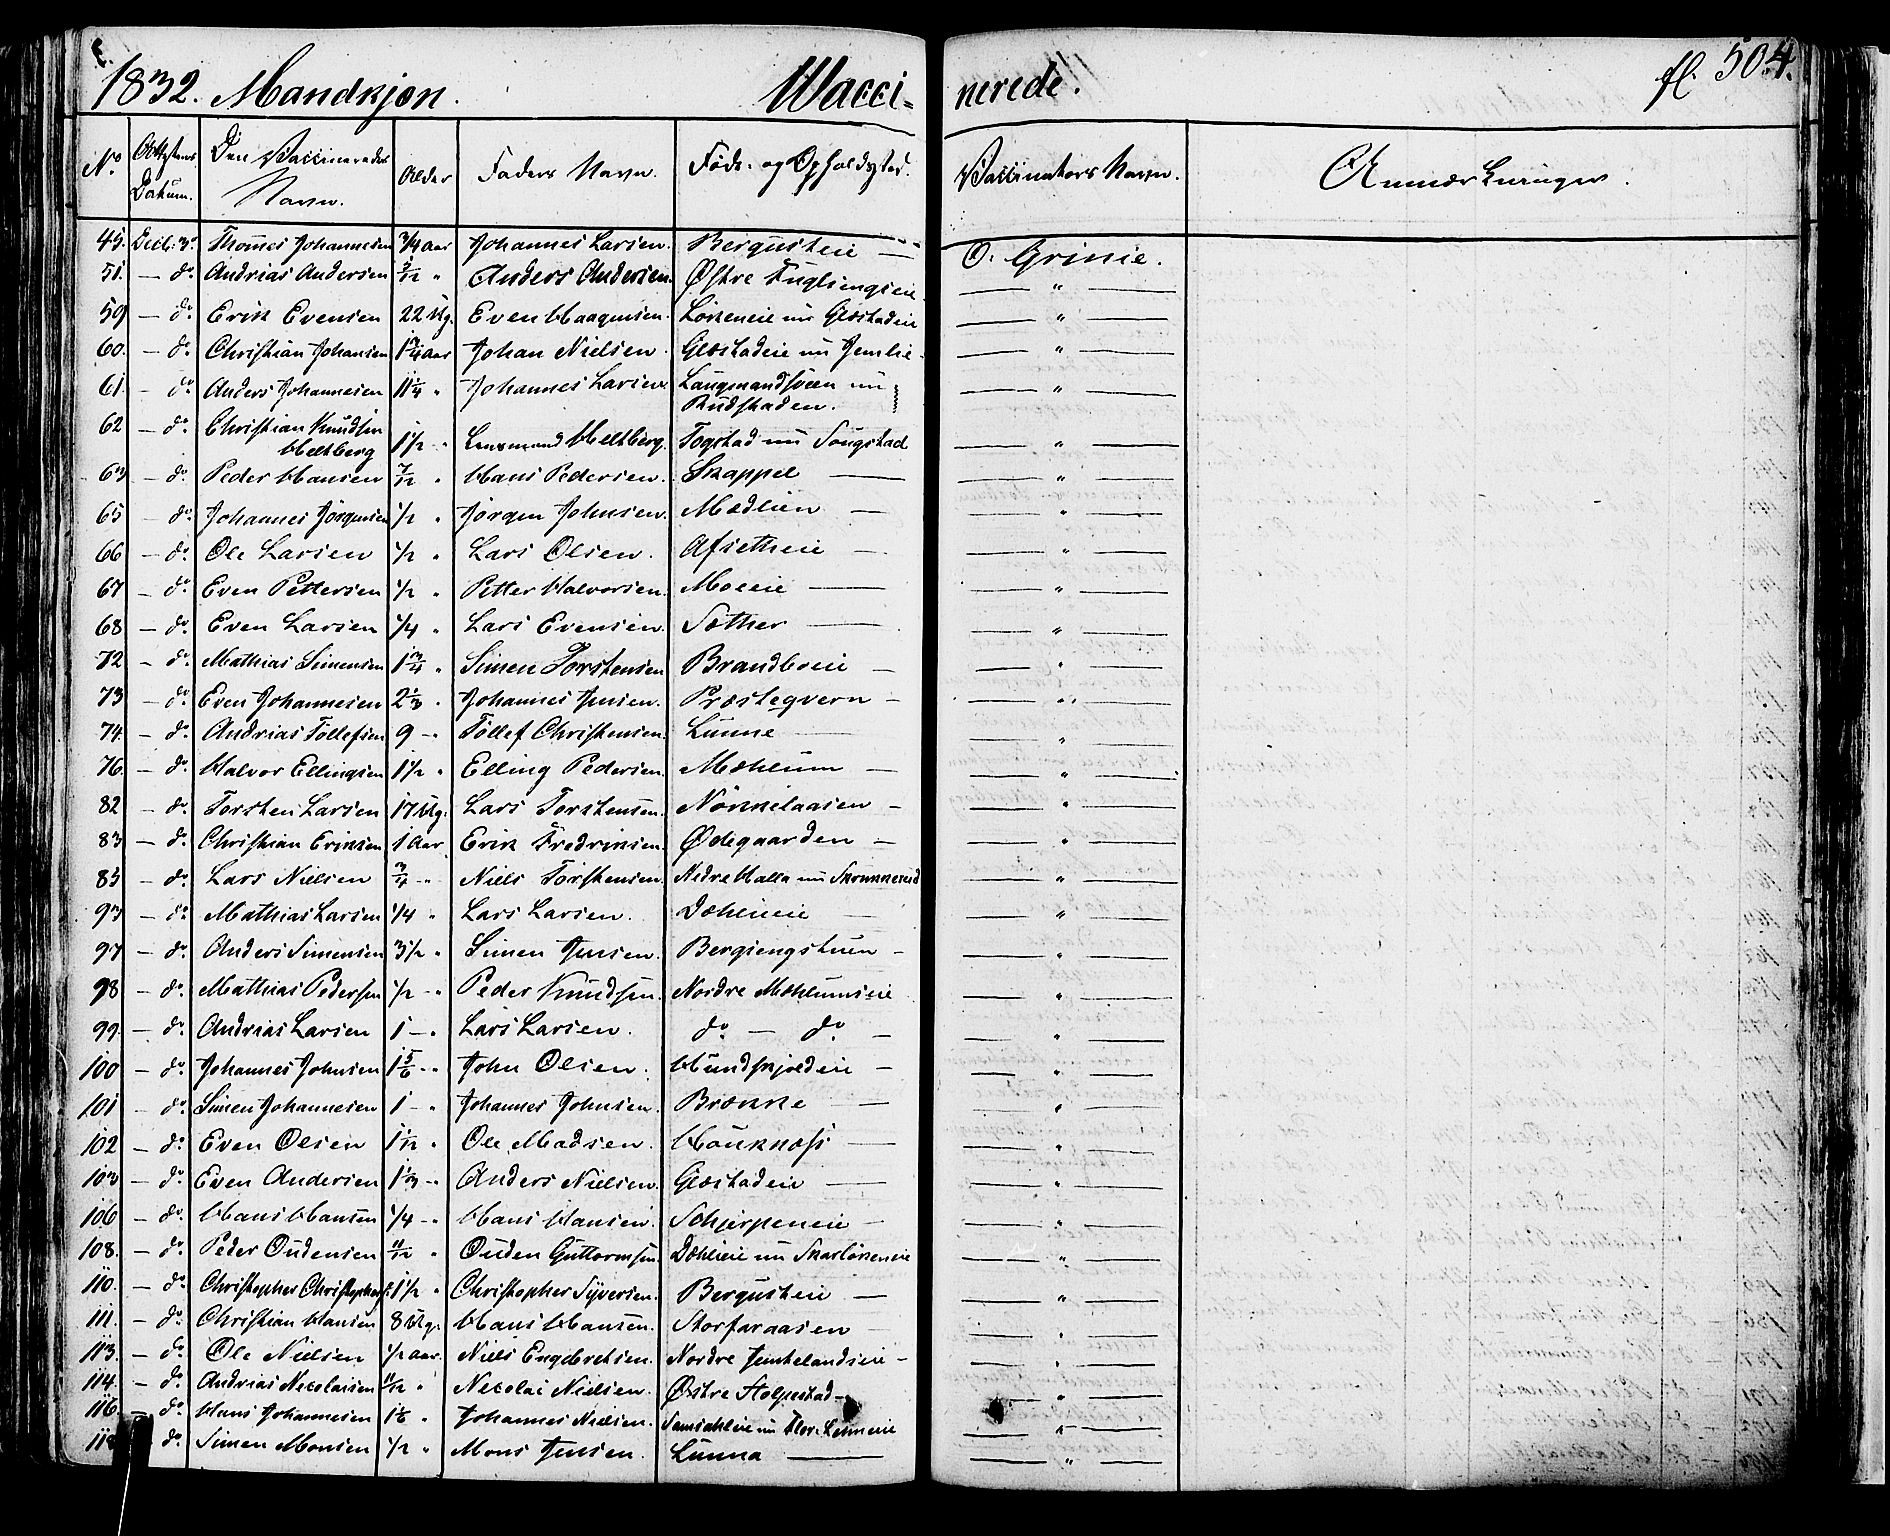 1832. Mandkjøn. Wacci- nerede. fl. 504.
No. Attestens Datum. Den Vaccineredes Navn. Alder Faders Navn. Føde- og Opholdssted. Vaccinators Navn. Anmærkninger.
45. Decbr 3. Thomes Johannesen 3/4 aar Johannes Larsen. Berqusteie — O. Grinie.
51. — do. Andrias Andersen 5/12 " Anders Andersen Østre Fuglsengseie — " —
59 — do. Erik Evensen 22 Ug. Even Haagensen. Løkeneie nu Glæstadeie — " —
60. — do. Christian Johansen 1 3/4 aar Johan Nielsen. Glæstadeie nu Jemlie — " —
61. — do. Anders Johannesen 11 1/4 " Johannes Larsen. Laugmandsveen nu Rudshaden. — " —
62 — do. Christian Knudsen Heltberg 1 1/2 " Lensmand Heltberg. Togstad nu Sougstad — " —
63 — do. Peder Hansen 7/12 " Hans Pedersen. Skappel — — " —
65 — do. Johannes Jørgensen 1/2 " Jørgen Johnsen. Mædlien — — " —
66 — do. Ole Larsen 1/2 " Lars Olsen. Afsetheie — — " —
67 — do. Even Pettersen 1/2 " Petter Halvorsen. Moeeie — — " —
68 — do. Even Larsen 1/4 " Lars Evensen. Sæther — — " —
72 — do. Mathias Simensen 1 3/4 " Simen Torstensen Brandboeie — — " —
73 — do. Even Johannesen 2 1/3 " Johannes Jensen. Præsteqvern — — " —
74. — do. Andrias Tollefsen 9 — " Tollef Christensen. Lunne — — " —
76. — do. Halvor Ellingsen 1 1/2 " Elling Pedersen. Mæhlum — — " —
82 — do. Torsten Larsen 17 Ug. Lars Torstensen. Nønkelaasen — — " —
83 — do. Christian Eriksen 1 Aar. Erik Fredriksen. Ødegaarden — — " —
85 — do. Lars Nielsen 3/4 — " Niels Torstensen. Nedre Halla nu Skrukkerud — " —
93 — do. Mathias Larsen 1/4 " Lars Larsen. Dæhleneie — — " —
97 — do. Anders Simensen 3 1/2 " Simen Jensen. Bergsengstuen — — " —
98 — do. Mathias Pedersen 1/2 — " Peder Knudsen. Nordre Mæhlumseie — " —
99. — do. Andrias Larsen 1 — " Lars Larsen. do. — do. — — " —
100 — do. Johannes Johnsen 1 5/6 — " John Olsen. Hundskjoldeie — — " —
101 — do. Simen Johannesen 1 — " Johannes Johnsen. Brænne — — " —
102 — do. Even Olsen 1 1/12 " Ole Madsen. Houknæss — — " —
103 — do. Even Andersen 1 1/3 — " Anders Nielsen. Glæstadeie — — " —
106 — do. Hans Hansen 1/4 — " Hans Hansen. Schjerpeneie — — " —
108. — do. Peder Oudensen 11/12 " Ouden Guttormsen Dæhleie nu Skarløkeneie — " —
110. — do. Christopher Christophers: 1 1/2 " Christopher Syversen. Berqusteie — — " —
111. — do. Christian Hansen 8 Ug. Hans Hansen. Storfaraasen — — " —
113. — do. Ole Nielsen 1/2 aar. Niels Engebretsen. Nordre Jemtelandseie — — " —
114. — do. Andrias Necolaisen 11/12 " Necolai Nielsen. Østre Stolpestad — — " —
116 — do. Hans Johannesen 1 1/6 " Johannes Nielsen. Samsahleie nu — " —
— do. Simen Monsen 1/2 " Mons Jensen. Lunna — — " —